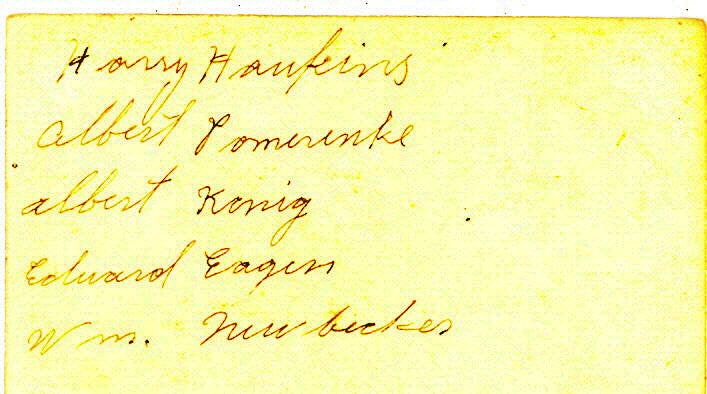 Harry Haufkins
Albert Pomerenke
Albert Konig
Edward Eagen
Wm. Newbecker